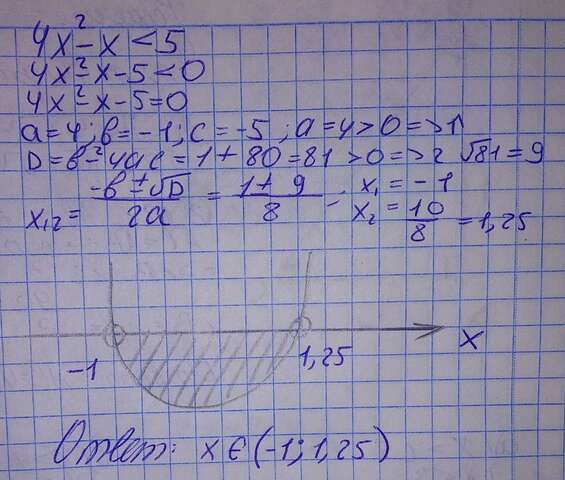 4x²-x<5
4x²-x-5<0
4x²-x-5=0
a=4; b=-1; c=-5; a=4>0=>1
D=b²-4ac=1+80=81>0=>2 √81=9
x₁,₂= (-b±√D)/2a = (1±9)/8; x₁=-1
x₂=10/8=1,25
-1 1,25 x
Ответ: x∈(-1;1,25)